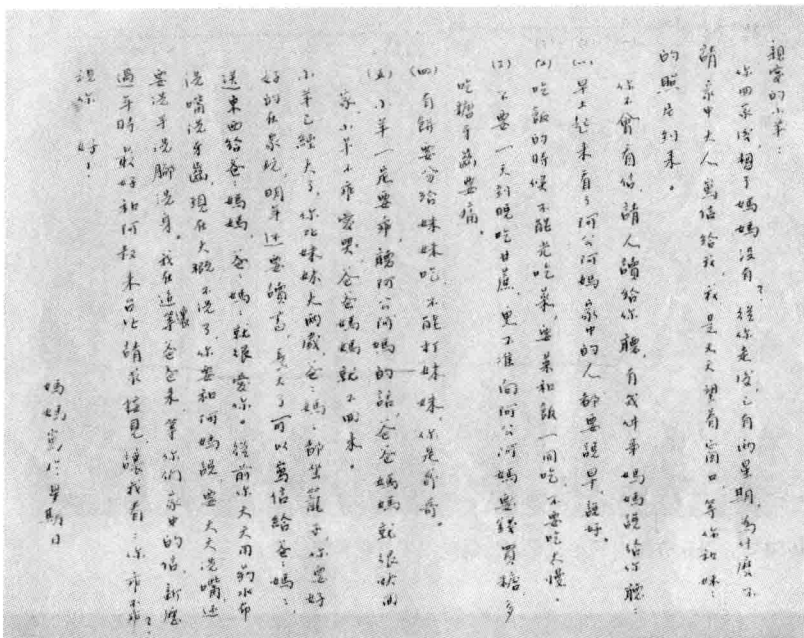 親愛的小羊：
你回家後，想了媽媽沒有？從你走後已有兩星期，為什麼不
請家中大人寫信給我，我是天天望着窗口，等你和妹妹
的照片到來。
你不會看信，請人讀給你聽，有幾件事媽媽說給你聽：
(一) 早上起來看了阿公阿媽家中的人都要說早，說好。
(二) 吃飯的時候不能光吃菜，要菜和飯一同吃，不要吃太慢。
(三) 不要一天到晚吃甘蔗，更不准向阿公阿媽要錢買糖，多
吃糖牙齒要痛。
(四) 有餅要分給妹妹吃，不能打妹妹，你是哥哥。
(五) 小羊一定要乖，聽阿公阿媽的話，爸爸媽媽就很快回
家，小羊不乖愛哭，爸爸媽媽就不回來。
小羊已經大了，你比妹妹大兩歲，爸爸媽媽都坐籠子，你要好
好的在家玩，明年還要讀書，長大了可以寫信給爸爸媽媽，
送東西給爸爸媽媽，爸爸媽媽就很愛你。從前你天天用藥水布
洗嘴洗牙齒，現在大概不洗了，你要和阿媽說，要天天洗嘴，還
要洗手洗腳洗身。我在這裏等爸爸來，等你們家中的信，新曆
過年時最好和阿叔來台北請求接見，讓我看看你乖不乖？
祝你 好！
媽媽寫於星期日